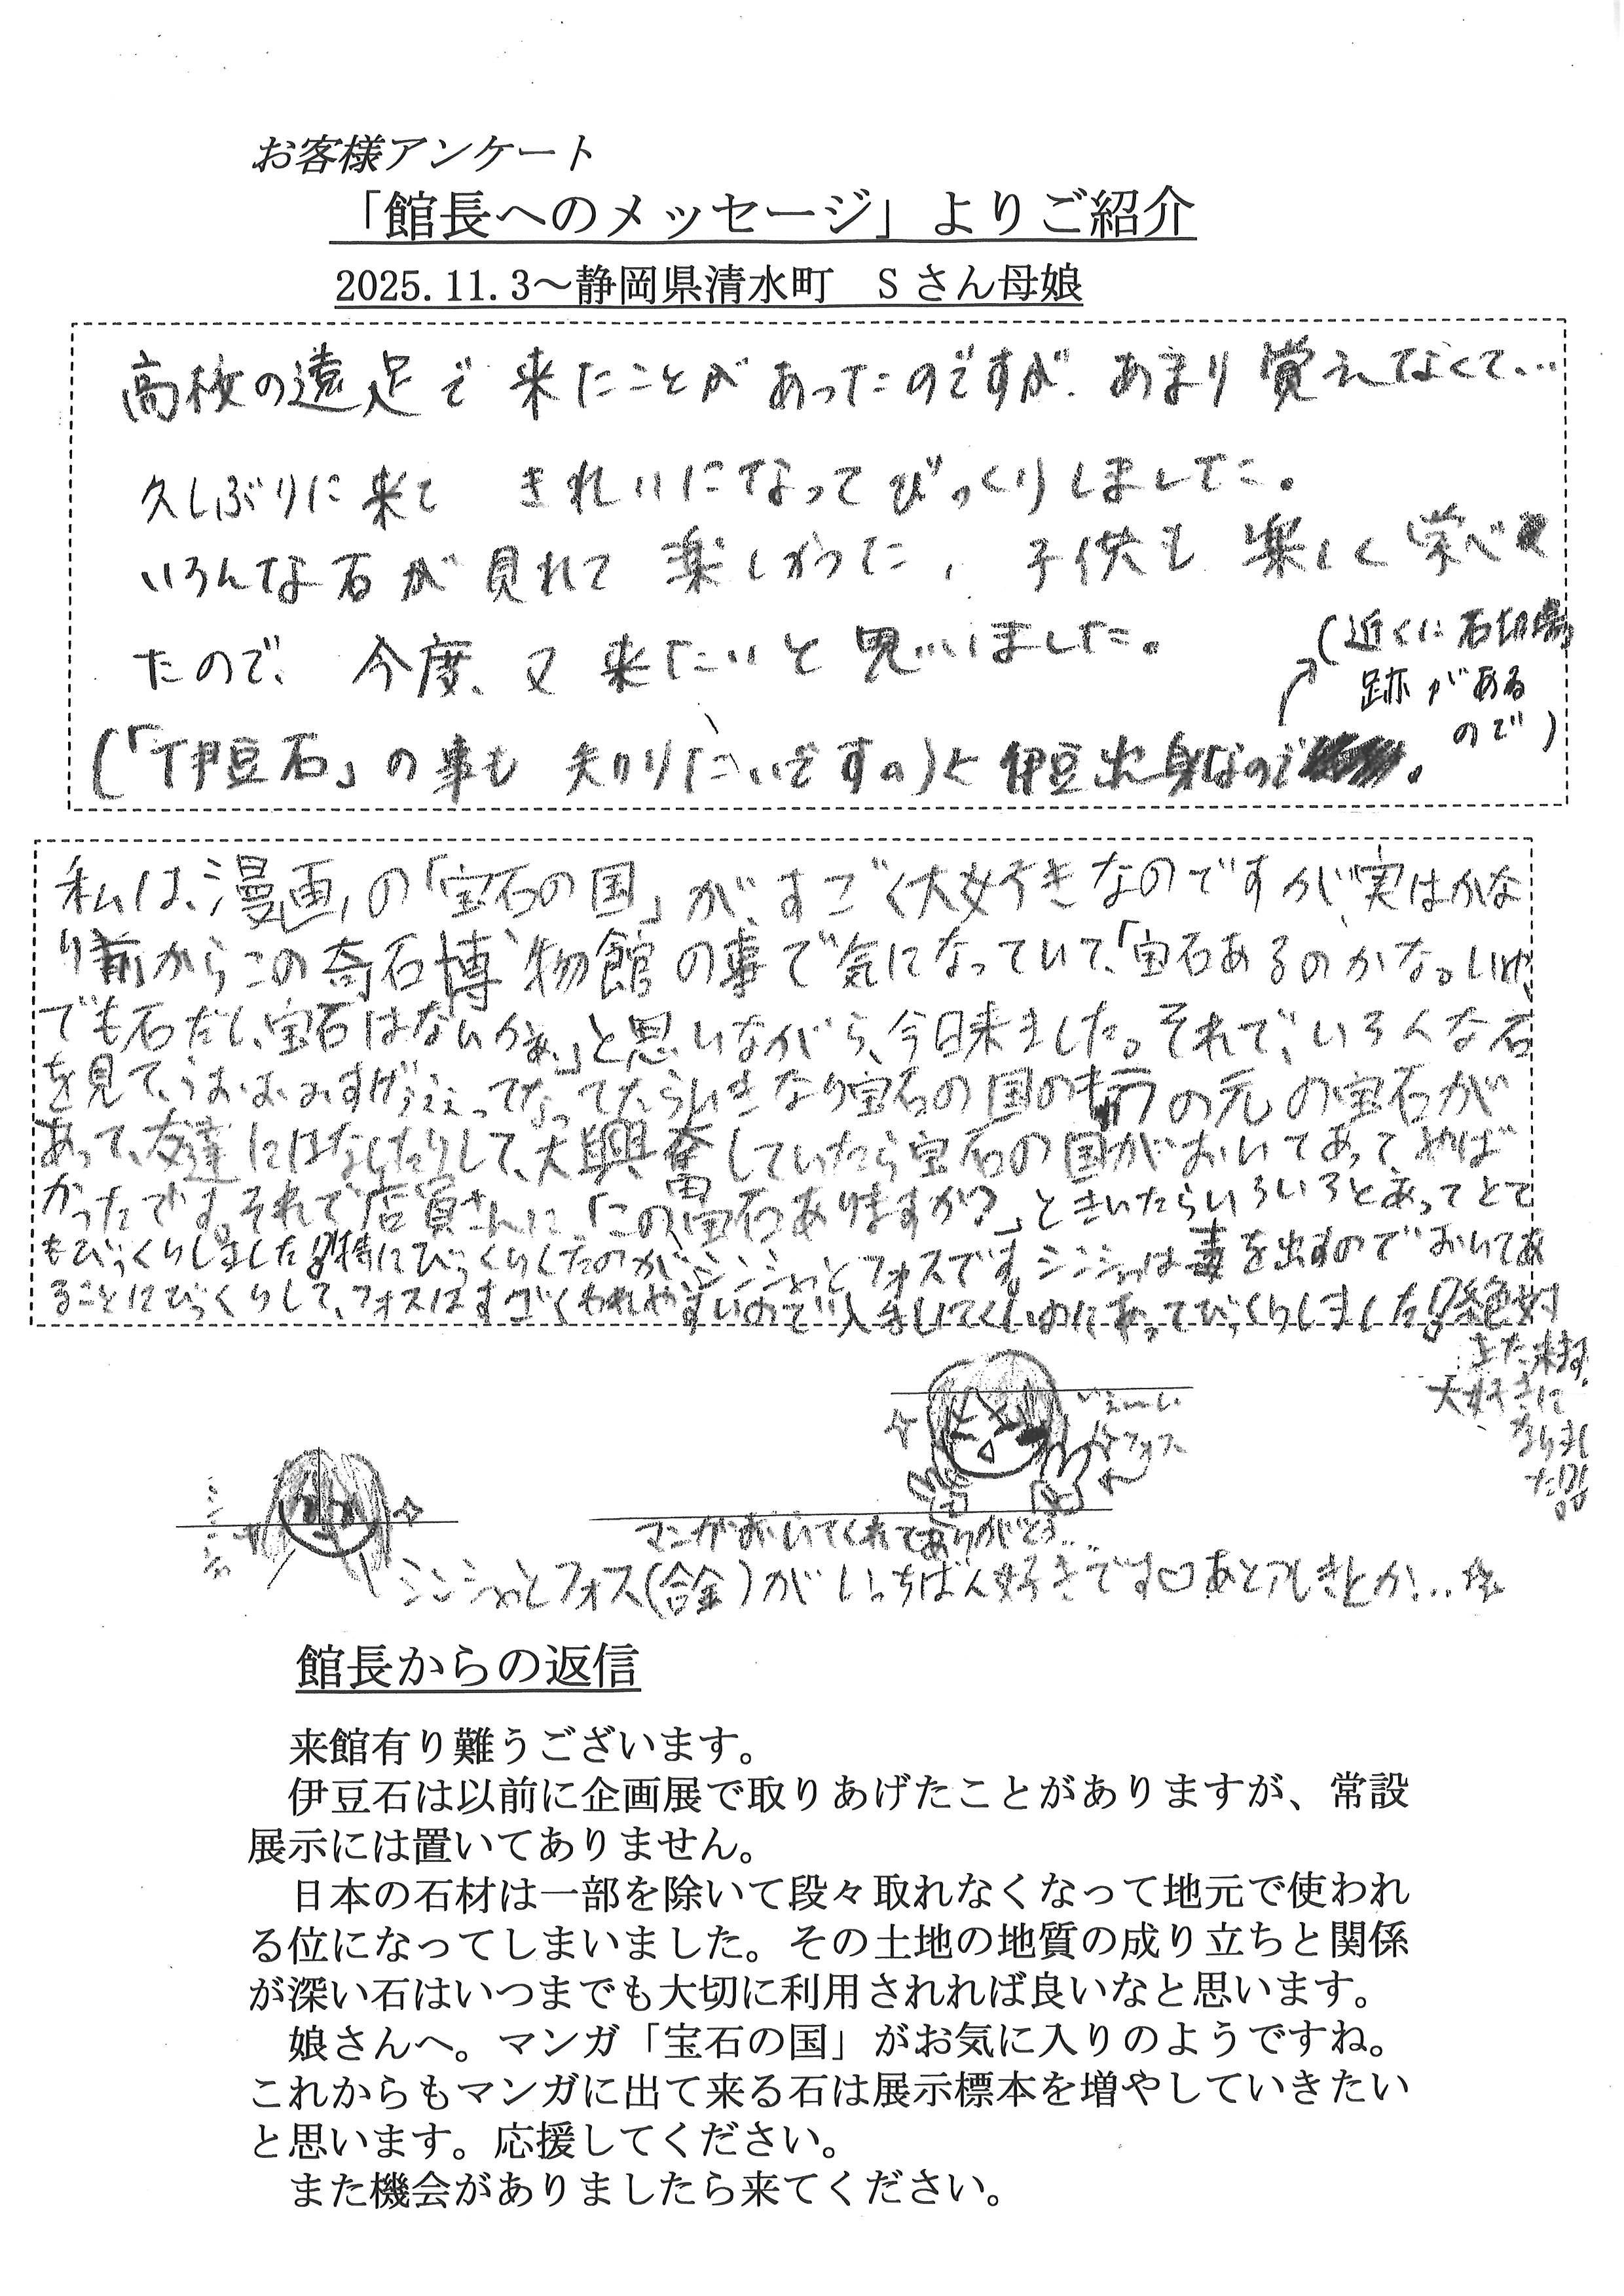 お客様アンケート
「館長へのメッセージ」よりご紹介
2025.11.3～静岡県清水町　Sさん母娘
高校の遠足で来たことがあったのですが、あまり覚えてなくて…
久しぶりに来て きれいになってびっくりしました。
いろんな石が見れて楽しかった、子供も楽しく学べ
たので、今度、又来たいと思いました。
(近くに石切場
跡がある
ので)
(「伊豆石」の事も知りたいです。)と伊豆出身なので。
私は、漫画の「宝石の国」が、すごく大好きなのですが、実はかな
り前からこの奇石博物館の事で気になっていて、「宝石あるのかな。いや、
でも石だし、宝石はないかぁ、」と思いながら、今日来ました。それで、いろんな石
を見て、うおおおすげぇぇぇってなってたらいきなり宝石の国のキャラの元の宝石が
あって、友達にはなしたりして、大興奮していたら宝石の国がおいてあってやば
かったです。それで店員さんに「この宝石ありますか?」ときいたらいろいろとあってとて
もびっくりしました!!特にびっくりしたのが、シンシャとフォスです。シンシャは毒を出すのでおいてあ
ることにびっくりして、フォスはすごくわれやすいので入手しにくいのにあってびっくりしました!!絶対
また来ます。
大好きに
なりまし
た!!
いえーい
フォス
シンシャ
マンガおいてくれてありがとう…
シンシャとフォス(合金)がいちばん好きです♡あとアレキとか…☆
館長からの返信
来館有り難うございます。
伊豆石は以前に企画展で取りあげたことがありますが、常設
展示には置いてありません。
日本の石材は一部を除いて段々取れなくなって地元で使われ
る位になってしまいました。その土地の地質の成り立ちと関係
が深い石はいつまでも大切に利用されれば良いなと思います。
娘さんへ。マンガ「宝石の国」がお気に入りのようですね。
これからもマンガに出て来る石は展示標本を増やしていきたい
と思います。応援してください。
また機会がありましたら来てください。